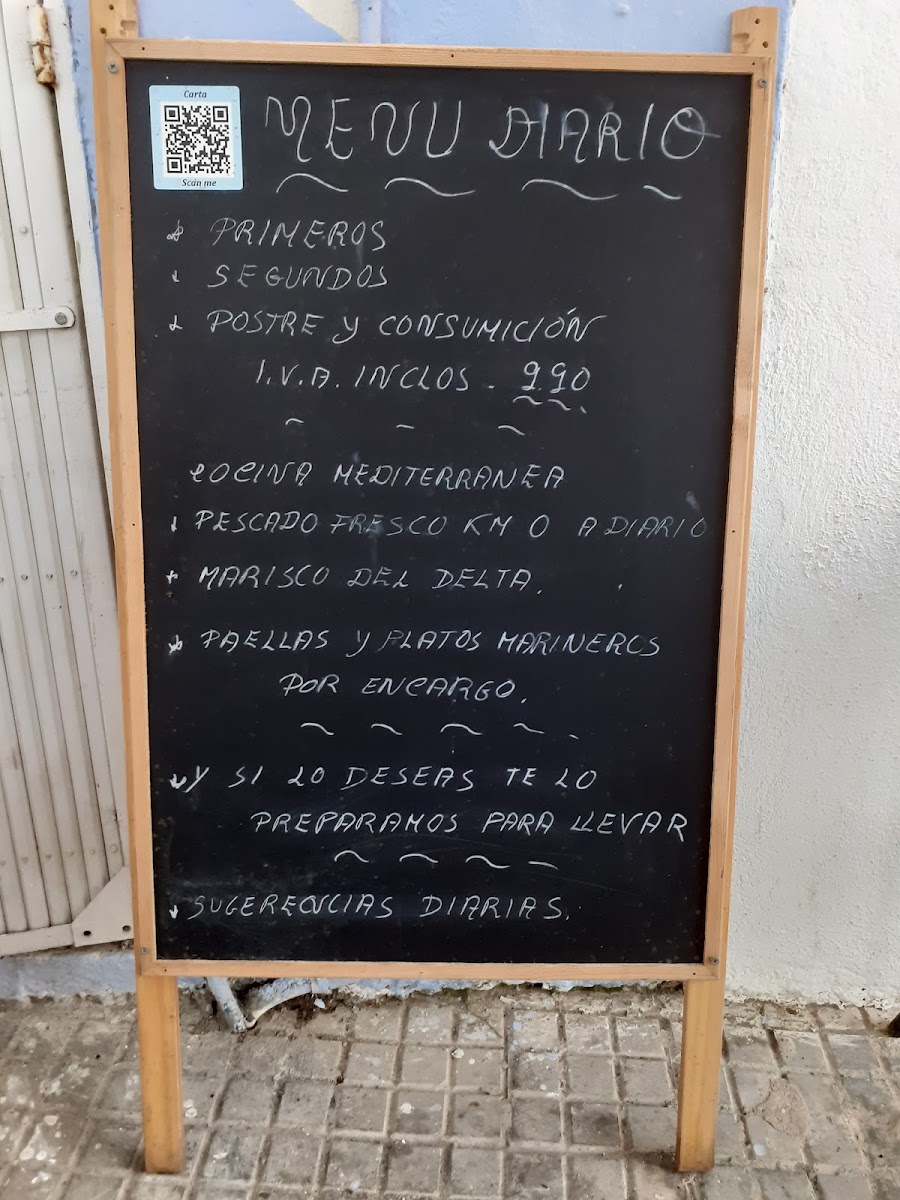 Carta
Scan me
MENU DIARIO
PRIMEROS
SEGUNDOS
POSTRE Y CONSUMICIÓN
I.V.A. INCLOS. 990
COCINA MEDITERRANEA
PESCADO FRESCO KM 0 A DIARIO
MARISCO DEL DELTA.
PAELLAS Y PLATOS MARINEROS
POR ENCARGO.
Y SI LO DESEAS TE LO
PREPARAMOS PARA LLEVAR
SUGERENCIAS DIARIAS.